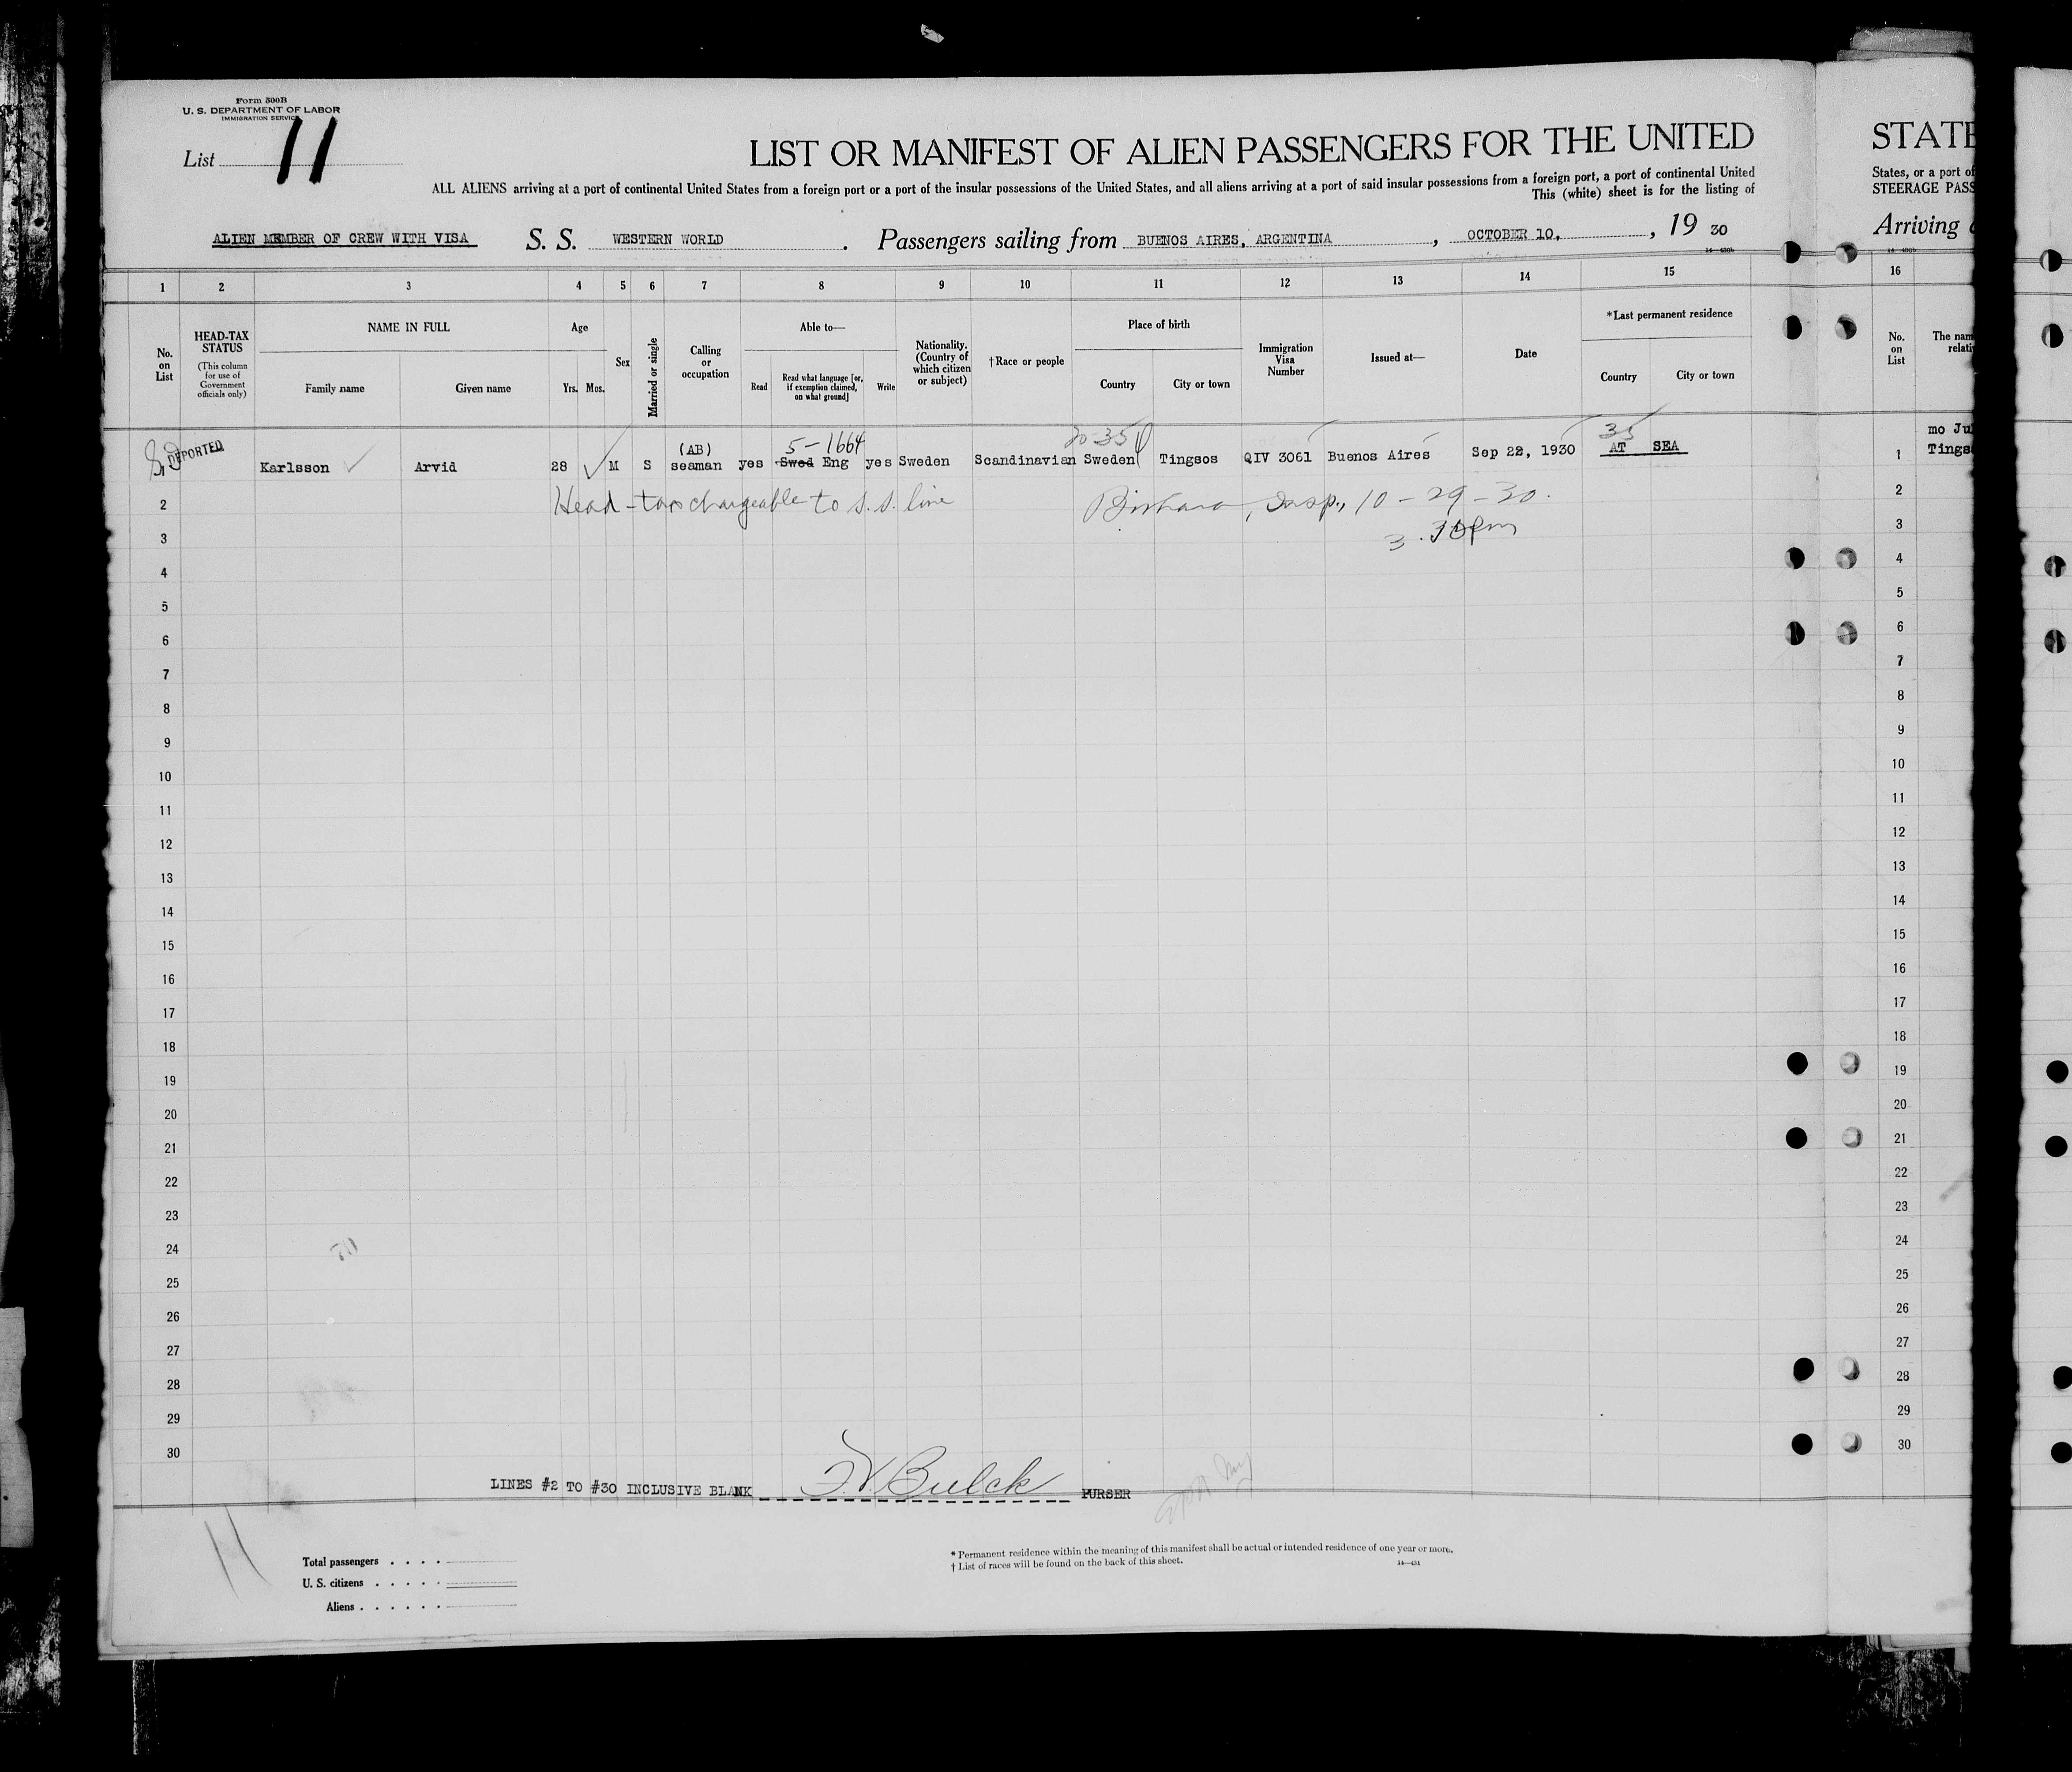 Form 500B
U. S. DEPARTMENT OF LABOR
IMMIGRATION SERVICE
List 11
LIST OR MANIFEST OF ALIEN PASSENGERS FOR THE UNITED
ALL ALIENS arriving at a port of continental United States from a foreign port or a port of the insular possessions of the United States, and all aliens arriving at a port of said insular possessions from a foreign port, a port of continental United
This (white) sheet is for the listing of
ALIEN MEMBER OF CREW WITH VISA S. S. WESTERN WORLD . Passengers sailing from BUENOS AIRES, ARGENTINA , OCTOBER 10, , 19 30
1 2 3 4 5 6 7 8 9 10 11 12 13 14 15
No. on List
HEAD-TAX STATUS
(This column for use of Government officials only)
NAME IN FULL
Family name Given name
Age
Yrs. Mos.
Sex
Married or single
Calling or occupation
Able to—
Read
Read what language [or, if exemption claimed, on what ground]
Write
Nationality. (Country of which citizen or subject)
†Race or people
Place of birth
Country City or town
Immigration Visa Number
Issued at—
Date
*Last permanent residence
Country City or town
5-1664
35
DEPORTED Karlsson Arvid 28 M S (AB) seaman yes Swed Eng yes Sweden Scandinavian Sweden Tingsos QIV 3061 Buenos Aires Sep 22, 1930 AT SEA
2 Head-tax chargeable to S.S. line Insp., 10-29-30.
3
4
5
6
7
8
9
10
11
12
13
14
15
16
17
18
19
20
21
22
23
24
25
26
27
28
29
30
LINES #2 TO #30 INCLUSIVE BLANK Bulck PURSER
11
Total passengers . . . .
U. S. citizens . . . . .
Aliens . . . . . .
* Permanent residence within the meaning of this manifest shall be actual or intended residence of one year or more.
† List of races will be found on the back of this sheet.
STATE
States, or a port of
STEERAGE PASS
Arriving
16
No. on List
The nam
relati
mo Ju
1 Tings
2
3
4
5
6
7
8
9
10
11
12
13
14
15
16
17
18
19
20
21
22
23
24
25
26
27
28
29
30